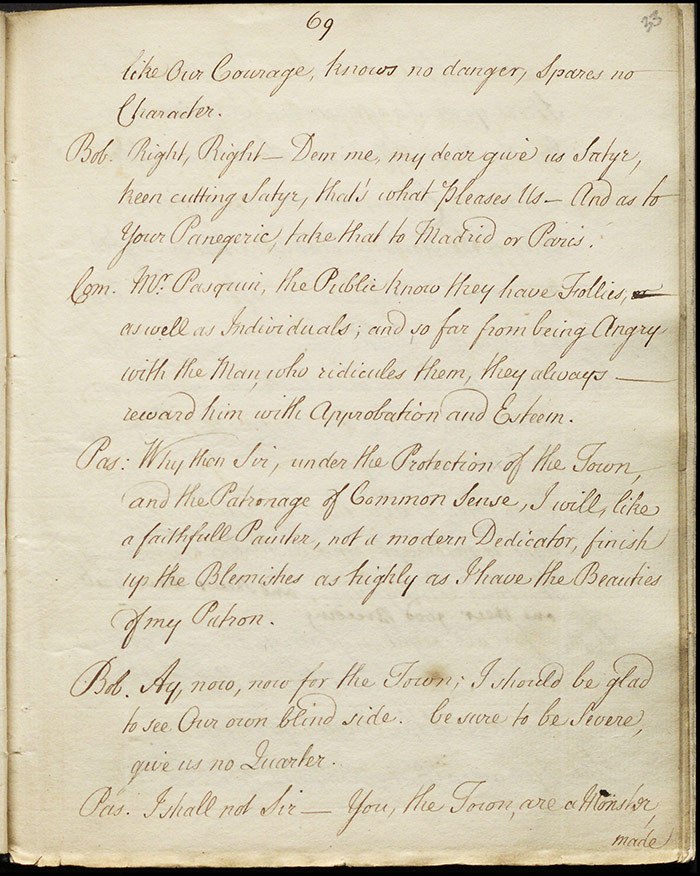 69
33
like Our Courage, knows no danger, Spares no
Character.
Bob. Right, Right — Dem me, my dear give us Satyr,
keen cutting Satyr, that's what pleases Us — And as to
Your Panegeric, take that to Madrid or Paris.
Com. Mr. Pasquin, the Public know they have Follies,
as well as Individuals; and so far from being Angry
with the Man, who ridicules them, they always —
reward him with Approbation and Esteem.
Pas: Why then Sir, under the Protection of the Town,
and the Patronage of Common Sense, I will, like
a faithfull Painter, not a modern Dedicator, finish
up the Blemishes as highly as I have the Beauties
of my Patron.
Bob. Ay, now, now for the Town; I should be glad
to see Our own blind side. be sure to be Severe,
give us no Quarter.
Pas. I shall not Sir — You, the Town, are a Monster,
made